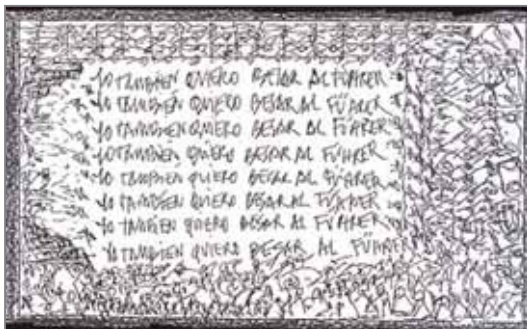 YO TAMBIÉN QUIERO BESAR AL FÜHRER
YO TAMBIÉN QUIERO BESAR AL FÜHRER
YO TAMBIÉN QUIERO BESAR AL FÜHRER
YO TAMBIÉN QUIERO BESAR AL FÜHRER
YO TAMBIÉN QUIERO BESAR AL FÜHRER
YO TAMBIÉN QUIERO BESAR AL FÜHRER
YO TAMBIÉN QUIERO BESAR AL FÜHRER
YO TAMBIÉN QUIERO BESAR AL FÜHRER